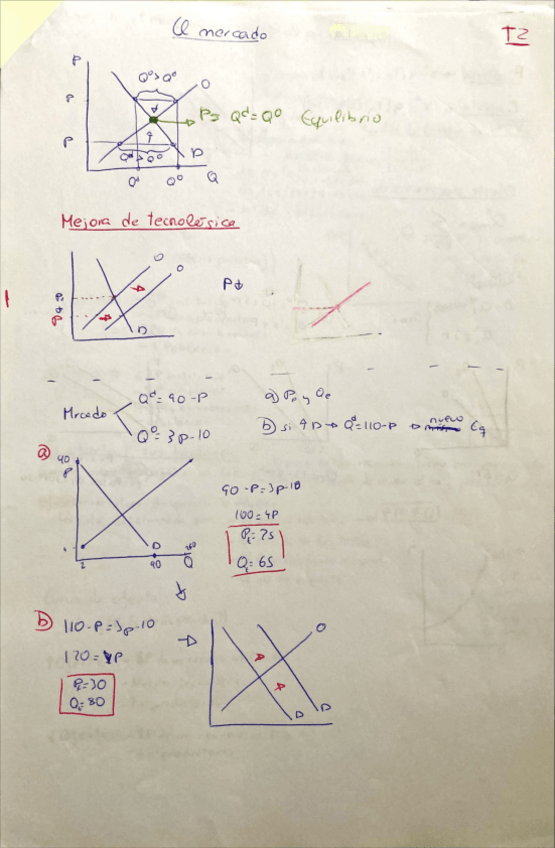 El mercado
T2
P
P
P
Qº>Qᵈ
O
Pₑ = Qᵈ = Qº Equilibrio
Qᵈ>Qº
D
Qᵈ Qº Q
Mejora de tecnológica
O
O
D
P↓
Mrcado
Qᵈ = 90 - P
Qº = 3P-10
a) Pₑ y Qₑ
b) si ↑D → Qᵈ=110-P → nuevo Eq
a)
90
P
D
90
Q
90-P=3P-10
100=4P
Pₑ=25
Qₑ=65
b)
110-P=3P-10
120=4P
Pₑ=30
Qₑ=80
O
D
D